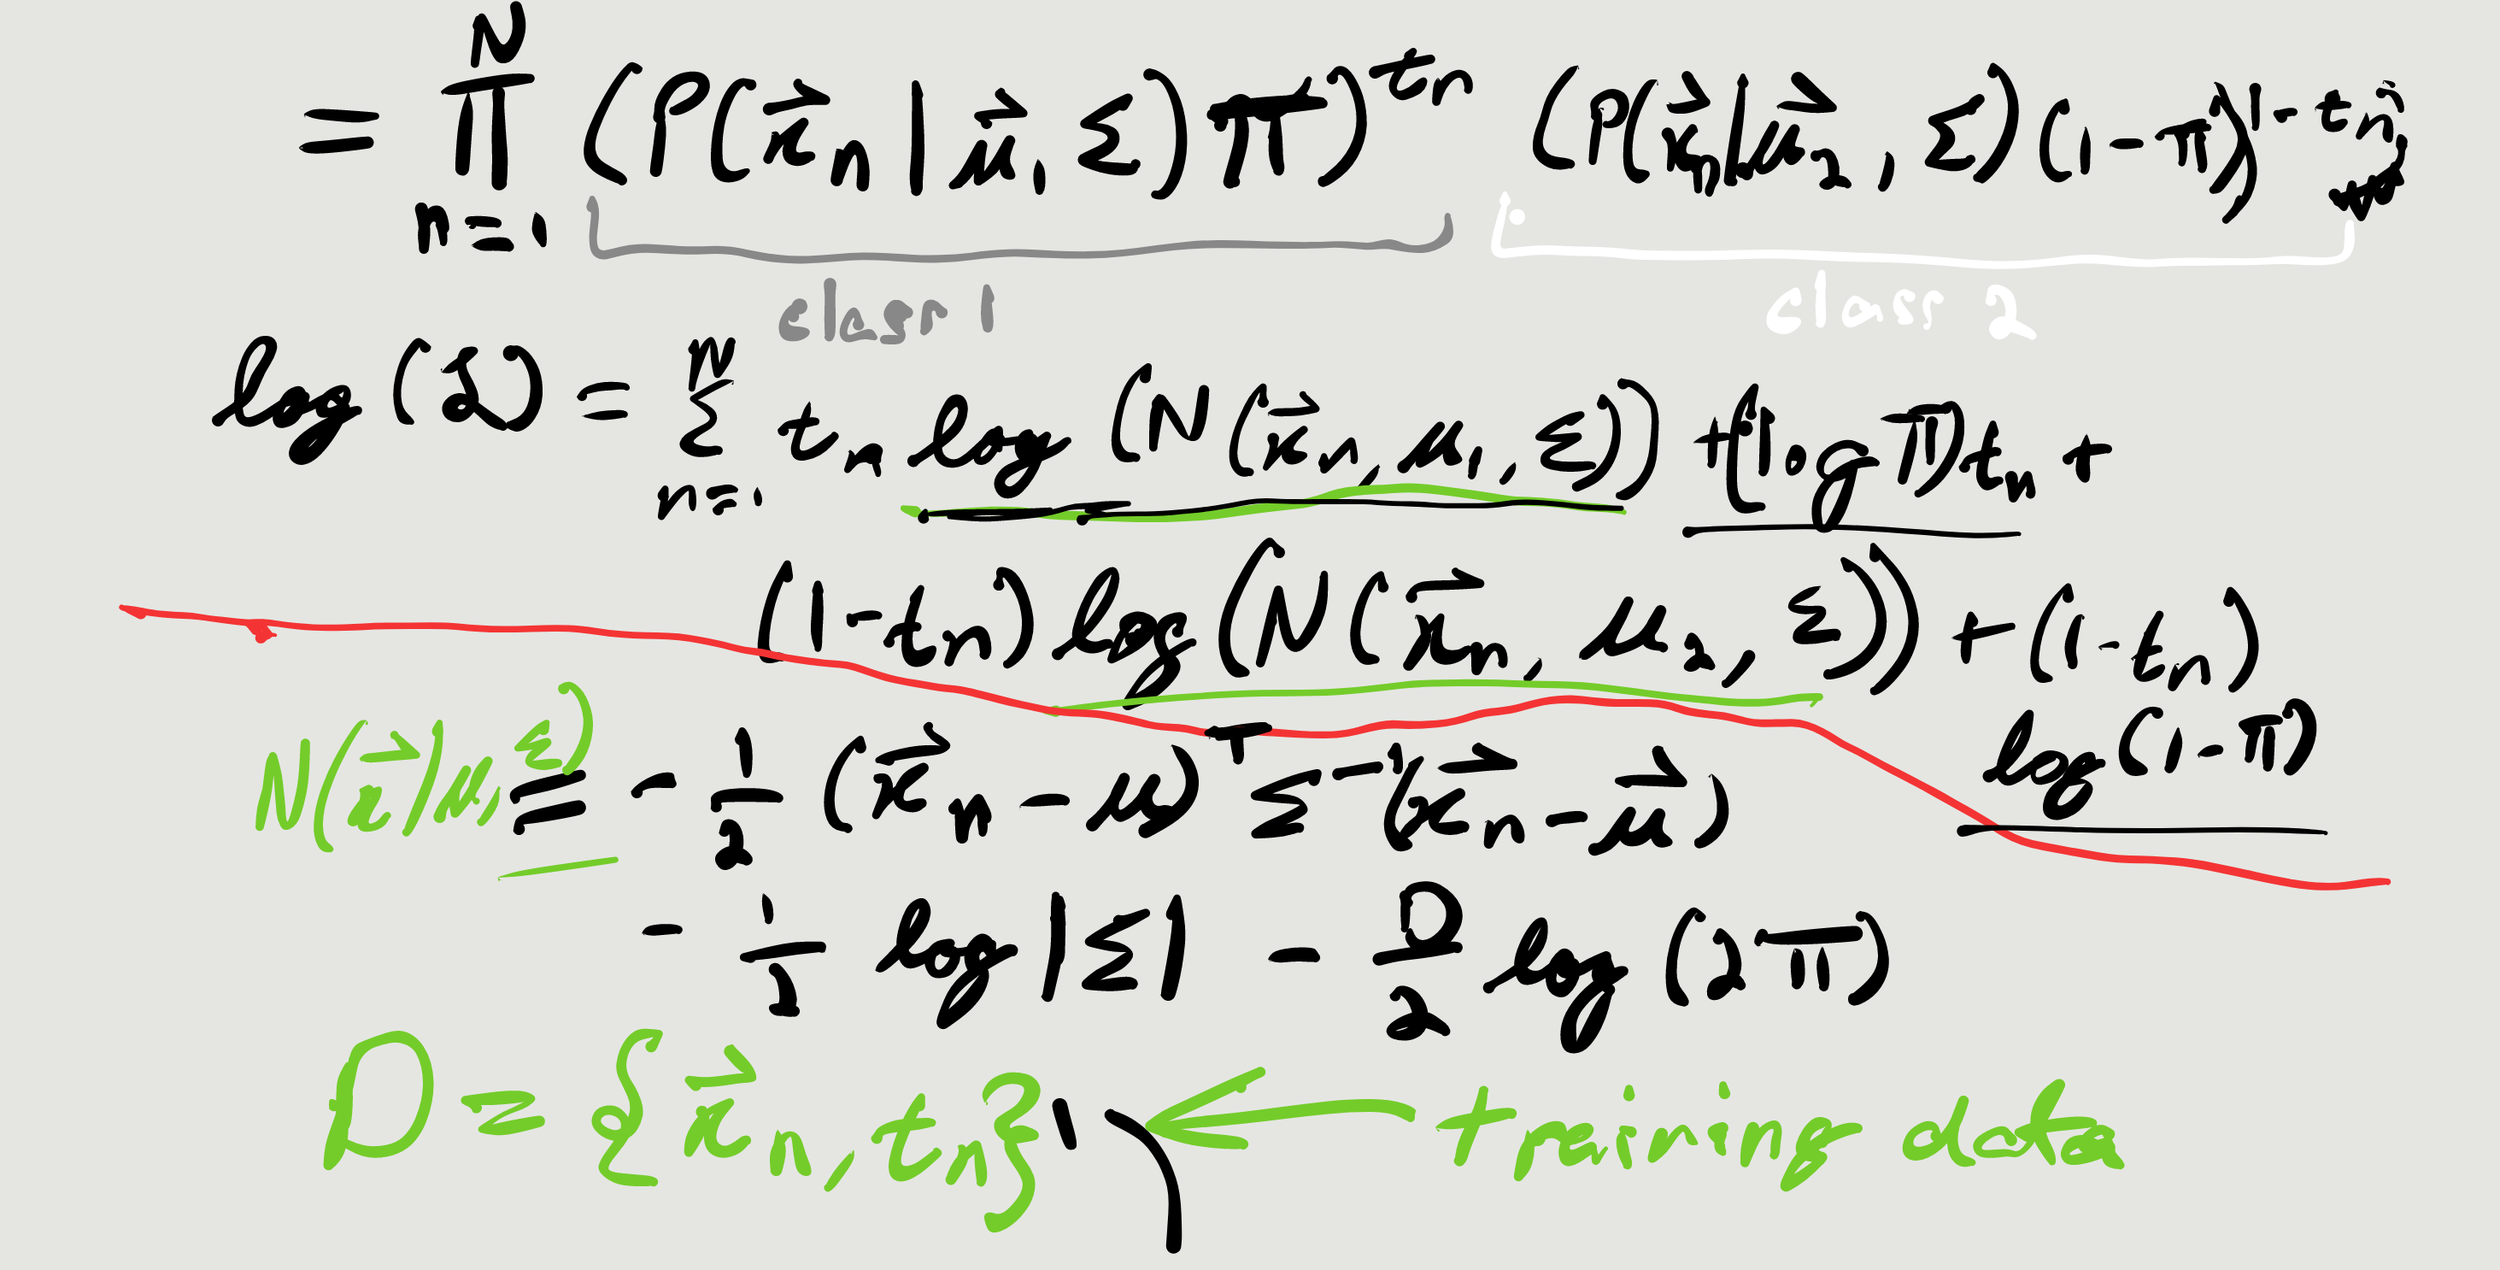 = ∏_{n=1}^{N} (P(x⃗_n | μ⃗_1, Σ) π)^{t_n} (P(x⃗_n | μ⃗_2, Σ)(1-π))^{1-t_n}
class 1 class 2
log (L) = Σ_{n=1}^{N} t_n log (N(x⃗_n, μ_1, Σ)) + (log π) t_n +
(1-t_n) log (N(x⃗_n, μ_2, Σ)) + (1-t_n)
log (1-π)
N(x⃗ | μ, Σ) = - 1/2 (x⃗_n - μ)^T Σ^{-1} (x⃗_n - μ⃗)
- 1/2 log |Σ| - D/2 log (2π)
D = {x⃗_n, t_n} ← training data